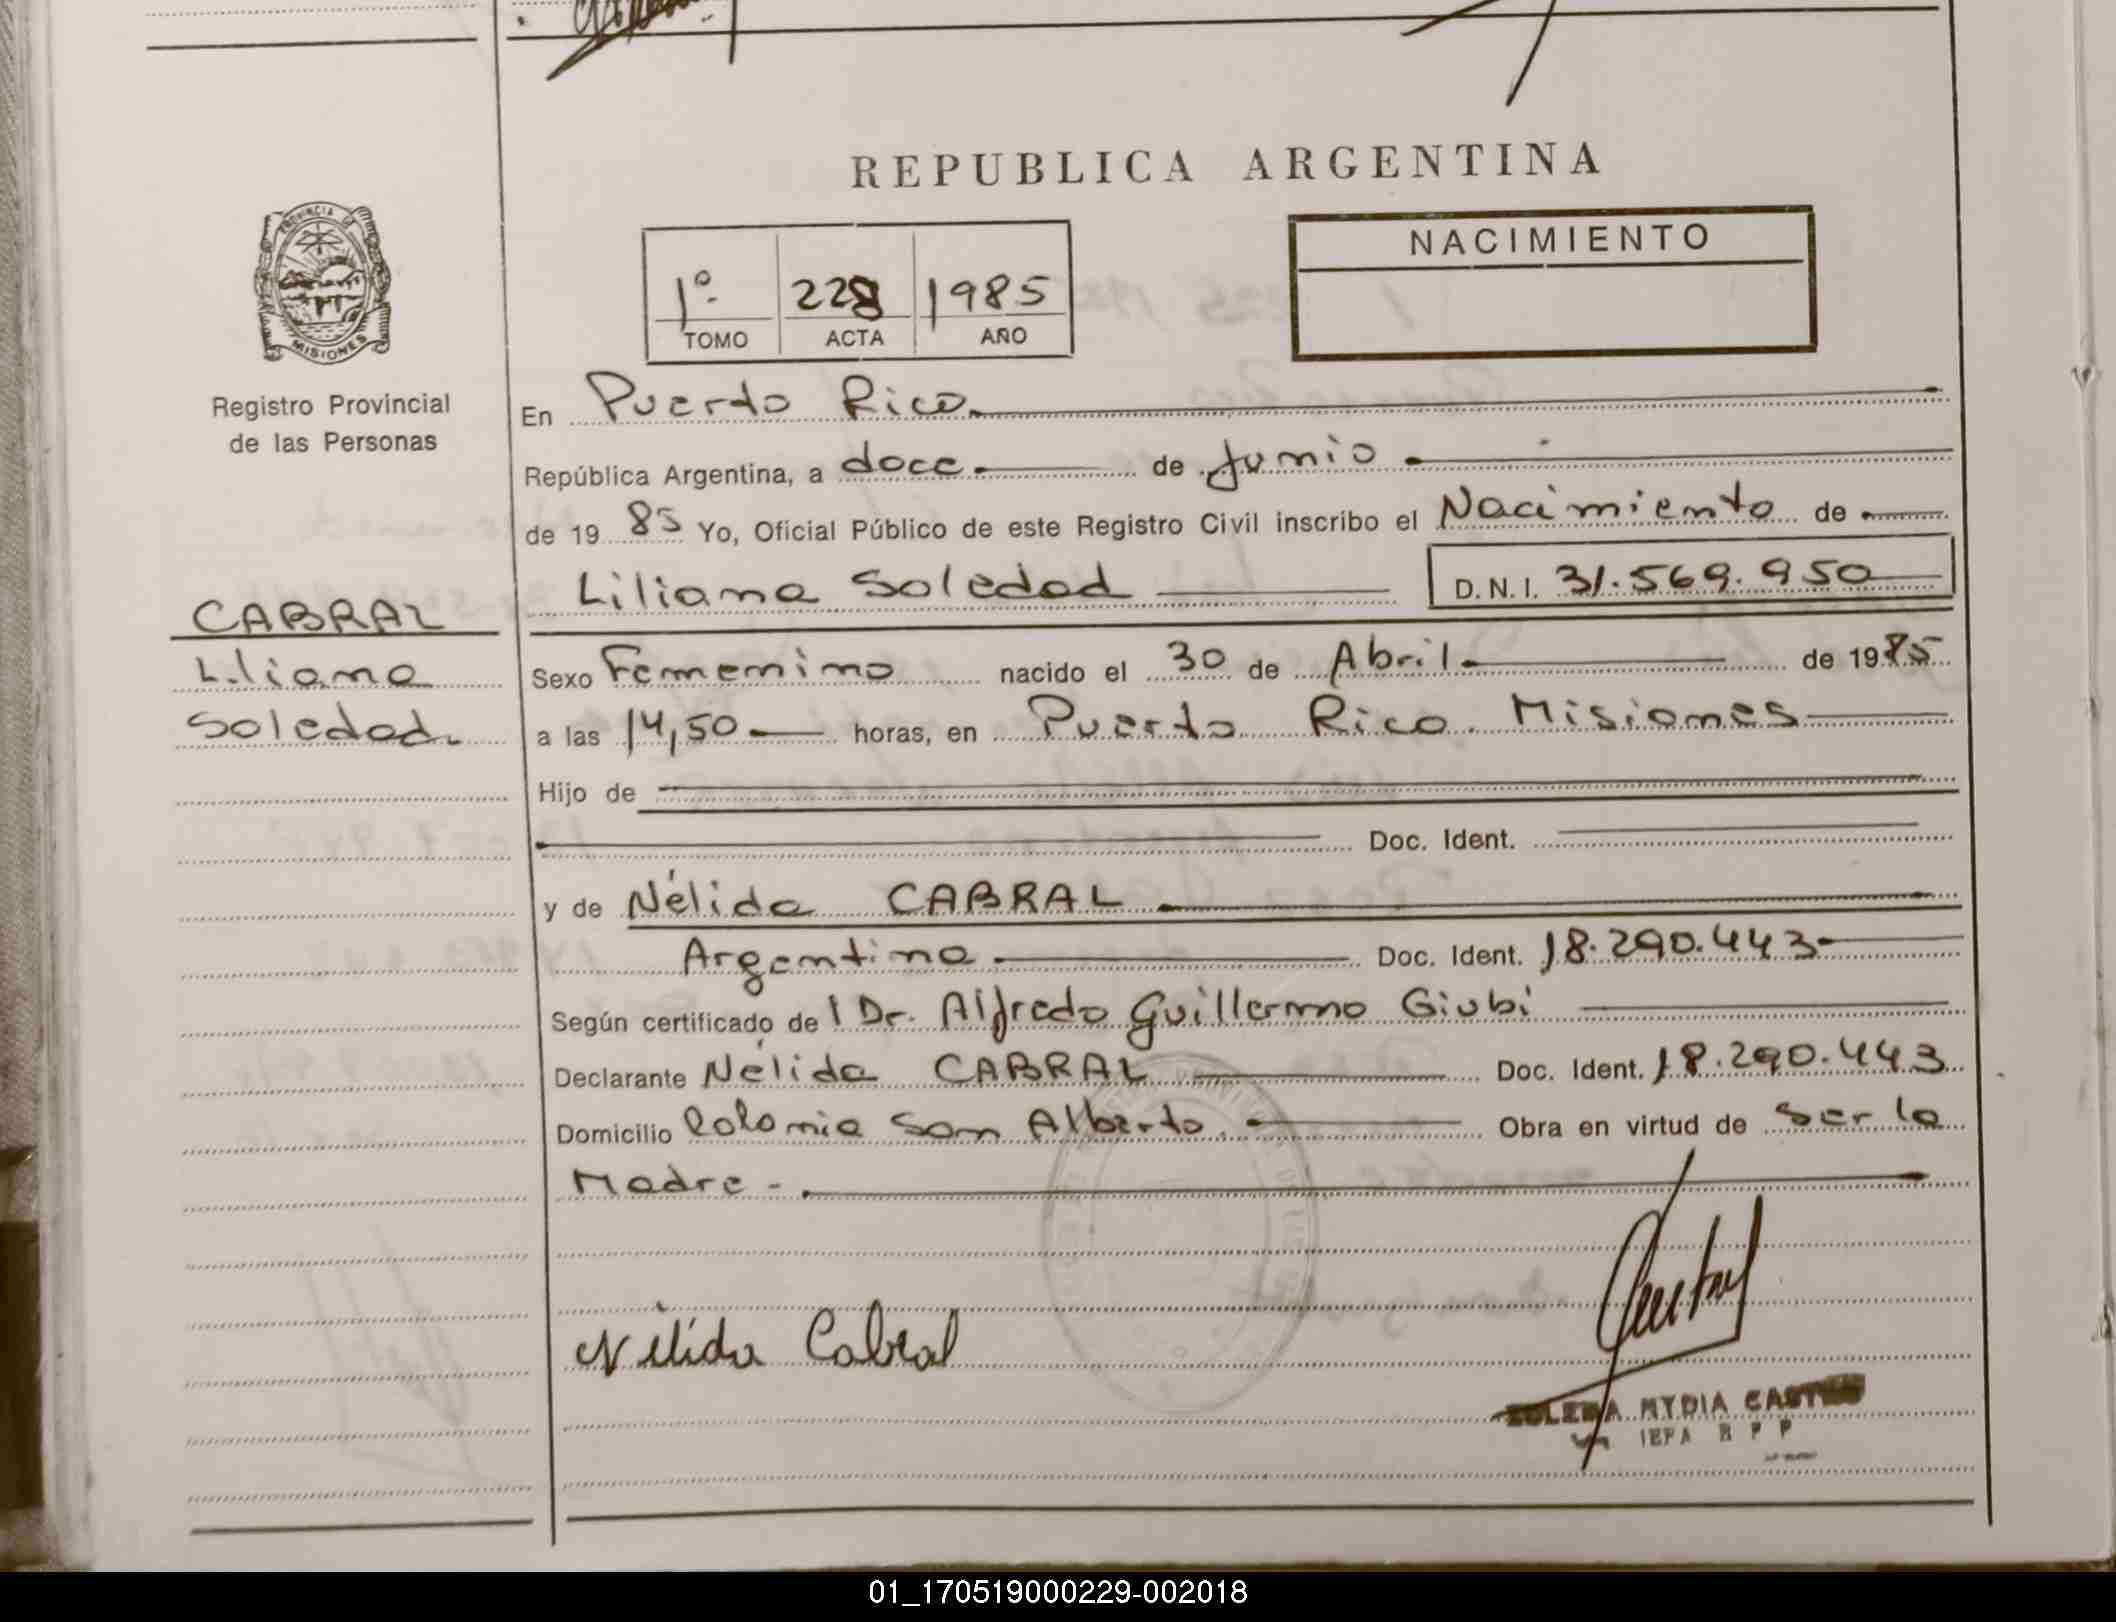 REPUBLICA ARGENTINA
PROVINCIA DE
MISIONES
Registro Provincial
de las Personas
1º 228 1985
TOMO ACTA AÑO
NACIMIENTO
En Puerto Rico.
República Argentina, a doce. de Junio
de 19 85 Yo, Oficial Público de este Registro Civil inscribo el Nacimiento de
Liliana Soledad D.N.I. 31.569.950
CABRAL
Liliana
Soledad.
Sexo Femenino nacido el 30 de Abril. de 1985
a las 14,50 horas, en Puerto Rico. Misiones
Hijo de
Doc. Ident.
y de Nélida CABRAL
Argentina Doc. Ident. 18.290.443
Según certificado de l Dr. Alfredo Guillermo Giubi
Declarante Nélida CABRAL Doc. Ident. 18.290.443
Domicilio Colonia San Alberto. Obra en virtud de Ser la
Madre -
Nélida Cabral
MYDIA
01_170519000229-002018